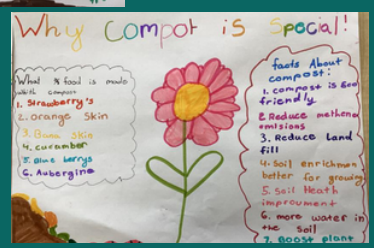 Why Compot is Special!
What % food is made
which compost
1. Strawberry's
2. orange Skin
3. Bana Skin
4. cucumber
5. Blue berrys
6. Aubergine
facts About
compost:
1. compost is Eco
friendly
2. Reduce methene
emisions
3. Reduce Land
fill
4. Soil enrichmen
better for growing
5. Soil Heath
improument
6. more water in
the soil
7. Boost plant